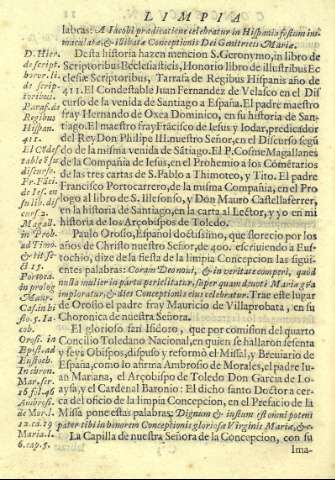 LIMPIA
labras: A Iacobi prædicatione celebratur in Hispania festum immaculatæ, & illibatæ Conceptionis Dei Genitricis Mariæ.
Desta historia hazen mencion S. Geronymo, in libro de
Scriptoribus Ecclesiasticis, Honorio libro de illustribus Ecclesiæ
Scriptoribus, Tarrafa de Regibus Hispanis año de
411. El Condestable Iuan Fernandez de Velasco en el Discurso
de la venida de Santiago a España. El padre maestro
fray Hernando de Oxea Dominico, en su historia de Santiago.
El maestro fray Frãcisco de Iesus y Iodar, predicador
del Rey Don Philipe III. nuestro Señor, en el Discurso segũdo
de la misma venida de Sãtiago. El P. Cosme Magallanes
de la Compañia de Iesus, en el Prohemio a los Cometarios
de las tres cartas de S. Pablo a Thimoteo, y Tito. El padre
Francisco Portocarrero, de la misma Compañia, en el Prologo
al libro de S. Ilefonso, y Don Mauro Castellaferrer,
en la historia de Santiago, en la carta al Lector, y yo en mi
historia de los Arçobispos de Toledo.
Paulo Orosio, Español doctissimo, que florecio por los
años de Christo nuestro Señor, de 400. escriuiendo a Eustochio,
dize de la fiesta de la limpia Concepcion las siguientes
palabras: Coram Deo noui, & in veritate comperi, quòd
nulla mulier in partu periclitatur, super quam deuotè Maria gratia
imploratur, & dies Conceptionis eius celebratur. Trae este lugar
de Orosio el padre fray Mauricio de Villaprobata, en su
Choronica de nuestra Señora.
El glorioso san Isidoro, que por comission del quarto
Concilio Toledano Nacional, en quien se hallaron sesenta
y seys Obispos, dispuso y reformò el Missal, y Breuiario de
España, como lo afirma Ambrosio de Morales, el padre Iuan
Mariana, el Arçobispo de Toledo Don Garcia de Loaysa,
y el Cardenal Baronio: El dicho santo Doctor acerca
del oficio de la limpia Concepcion, en el Prefacio de la
Missa pone estas palabras: Dignum & iustum est omnipotenti
pater tibi in honorem Conceptionis gloriosæ Virginis Mariæ, &c.
La Capilla de nuestra Señora de la Concepcion, con su
Ima-
D. Hier.
de script.
Regibus
Hispan.
411.
discurso.